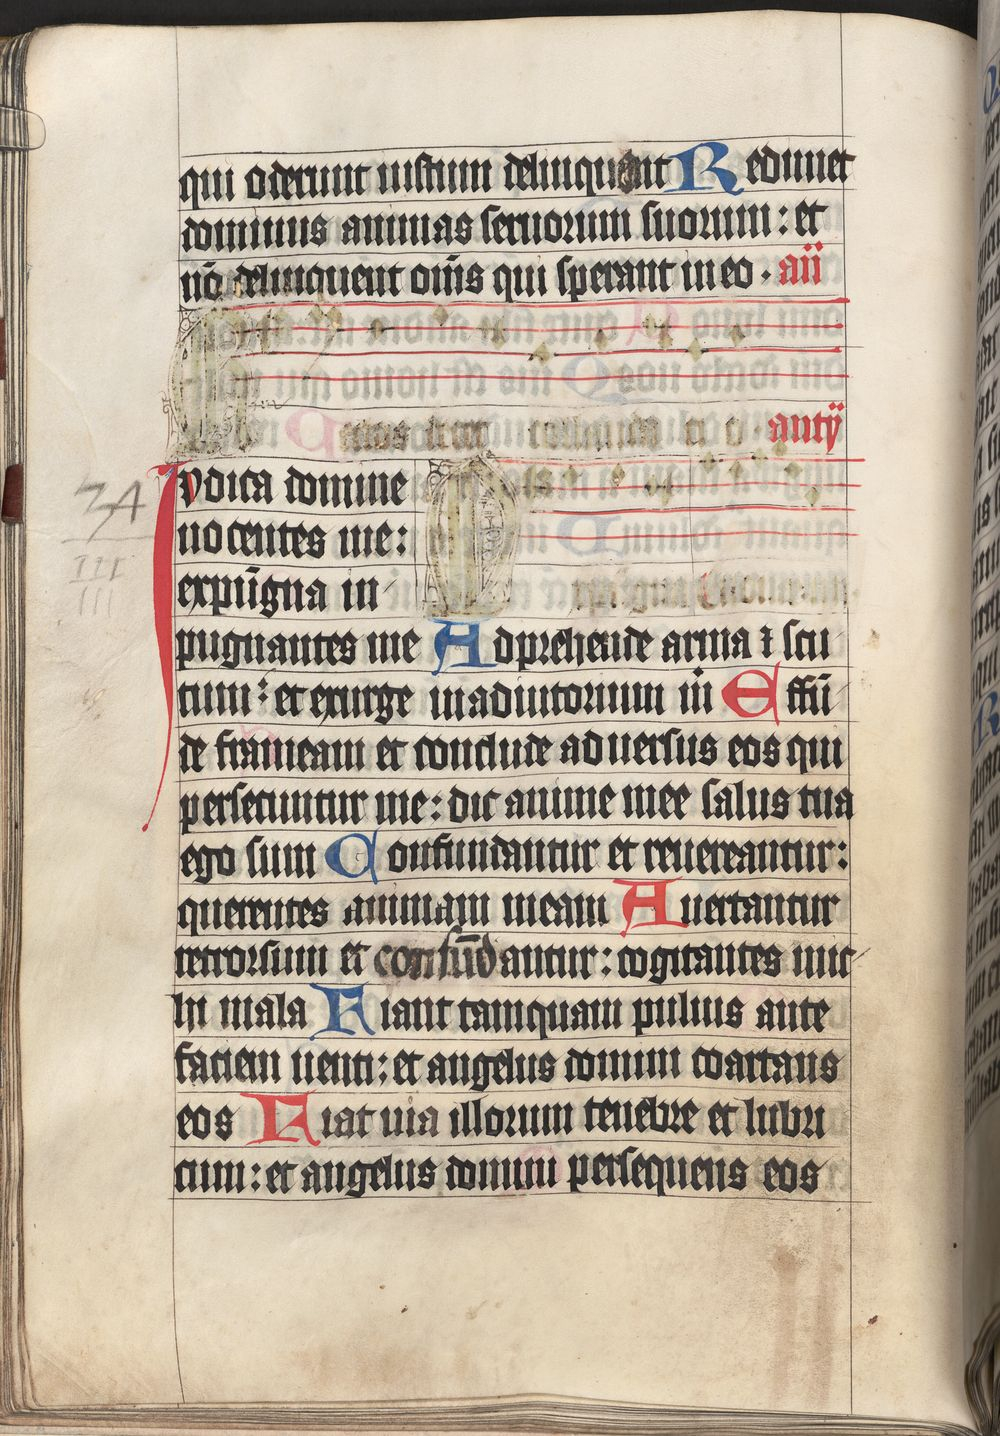 qui oderunt iustum delinquent Redimet
dominus animas seruorum suorum : et
nō delinquent oīns qui sperant in eo . aii
antÿ
Iudica domine
nocentes me :
expūgna in
pugnantes me Adprehende arma ⁊ scu
tum : et exurge inadiutorium m̄ Effū
de frameam et conclude aduersus eos qui
persecuntur me : dic anime mee salus tua
ego sum Confundantur et reuereantur :
querentes animam meam Auertantur
retrorsum et confūdantur : cogitantes mic
hi mala Fiant tamquam puluis ante
faciem uenti : et angelus domini coartans
eos Fiat uia illorum tenebre et lubri
cum : et angelus domini persequens eos
7A
III
III